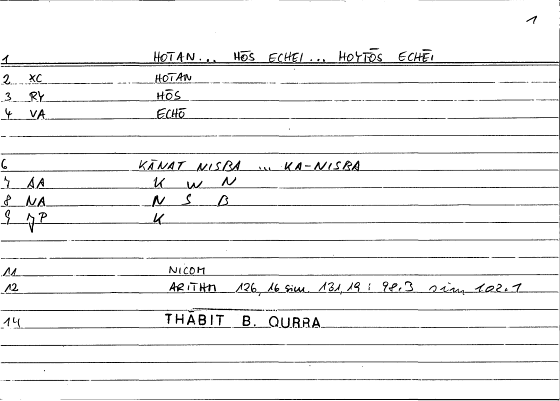 1
1 HOTAN... HŌS ECHEI... HOYTŌS ECHEI
2 XC HOTAN
3 RY HŌS
4 VA ECHŌ
6 KĀNAT NISBA ... KA-NISBA
7 AA K W N
8 NA N S B
9 JP K
11 NICOM
12 ARITHM 126, 16 sim. 131, 19 : 98.3 sim 102.1
14 THĀBIT B. QURRA